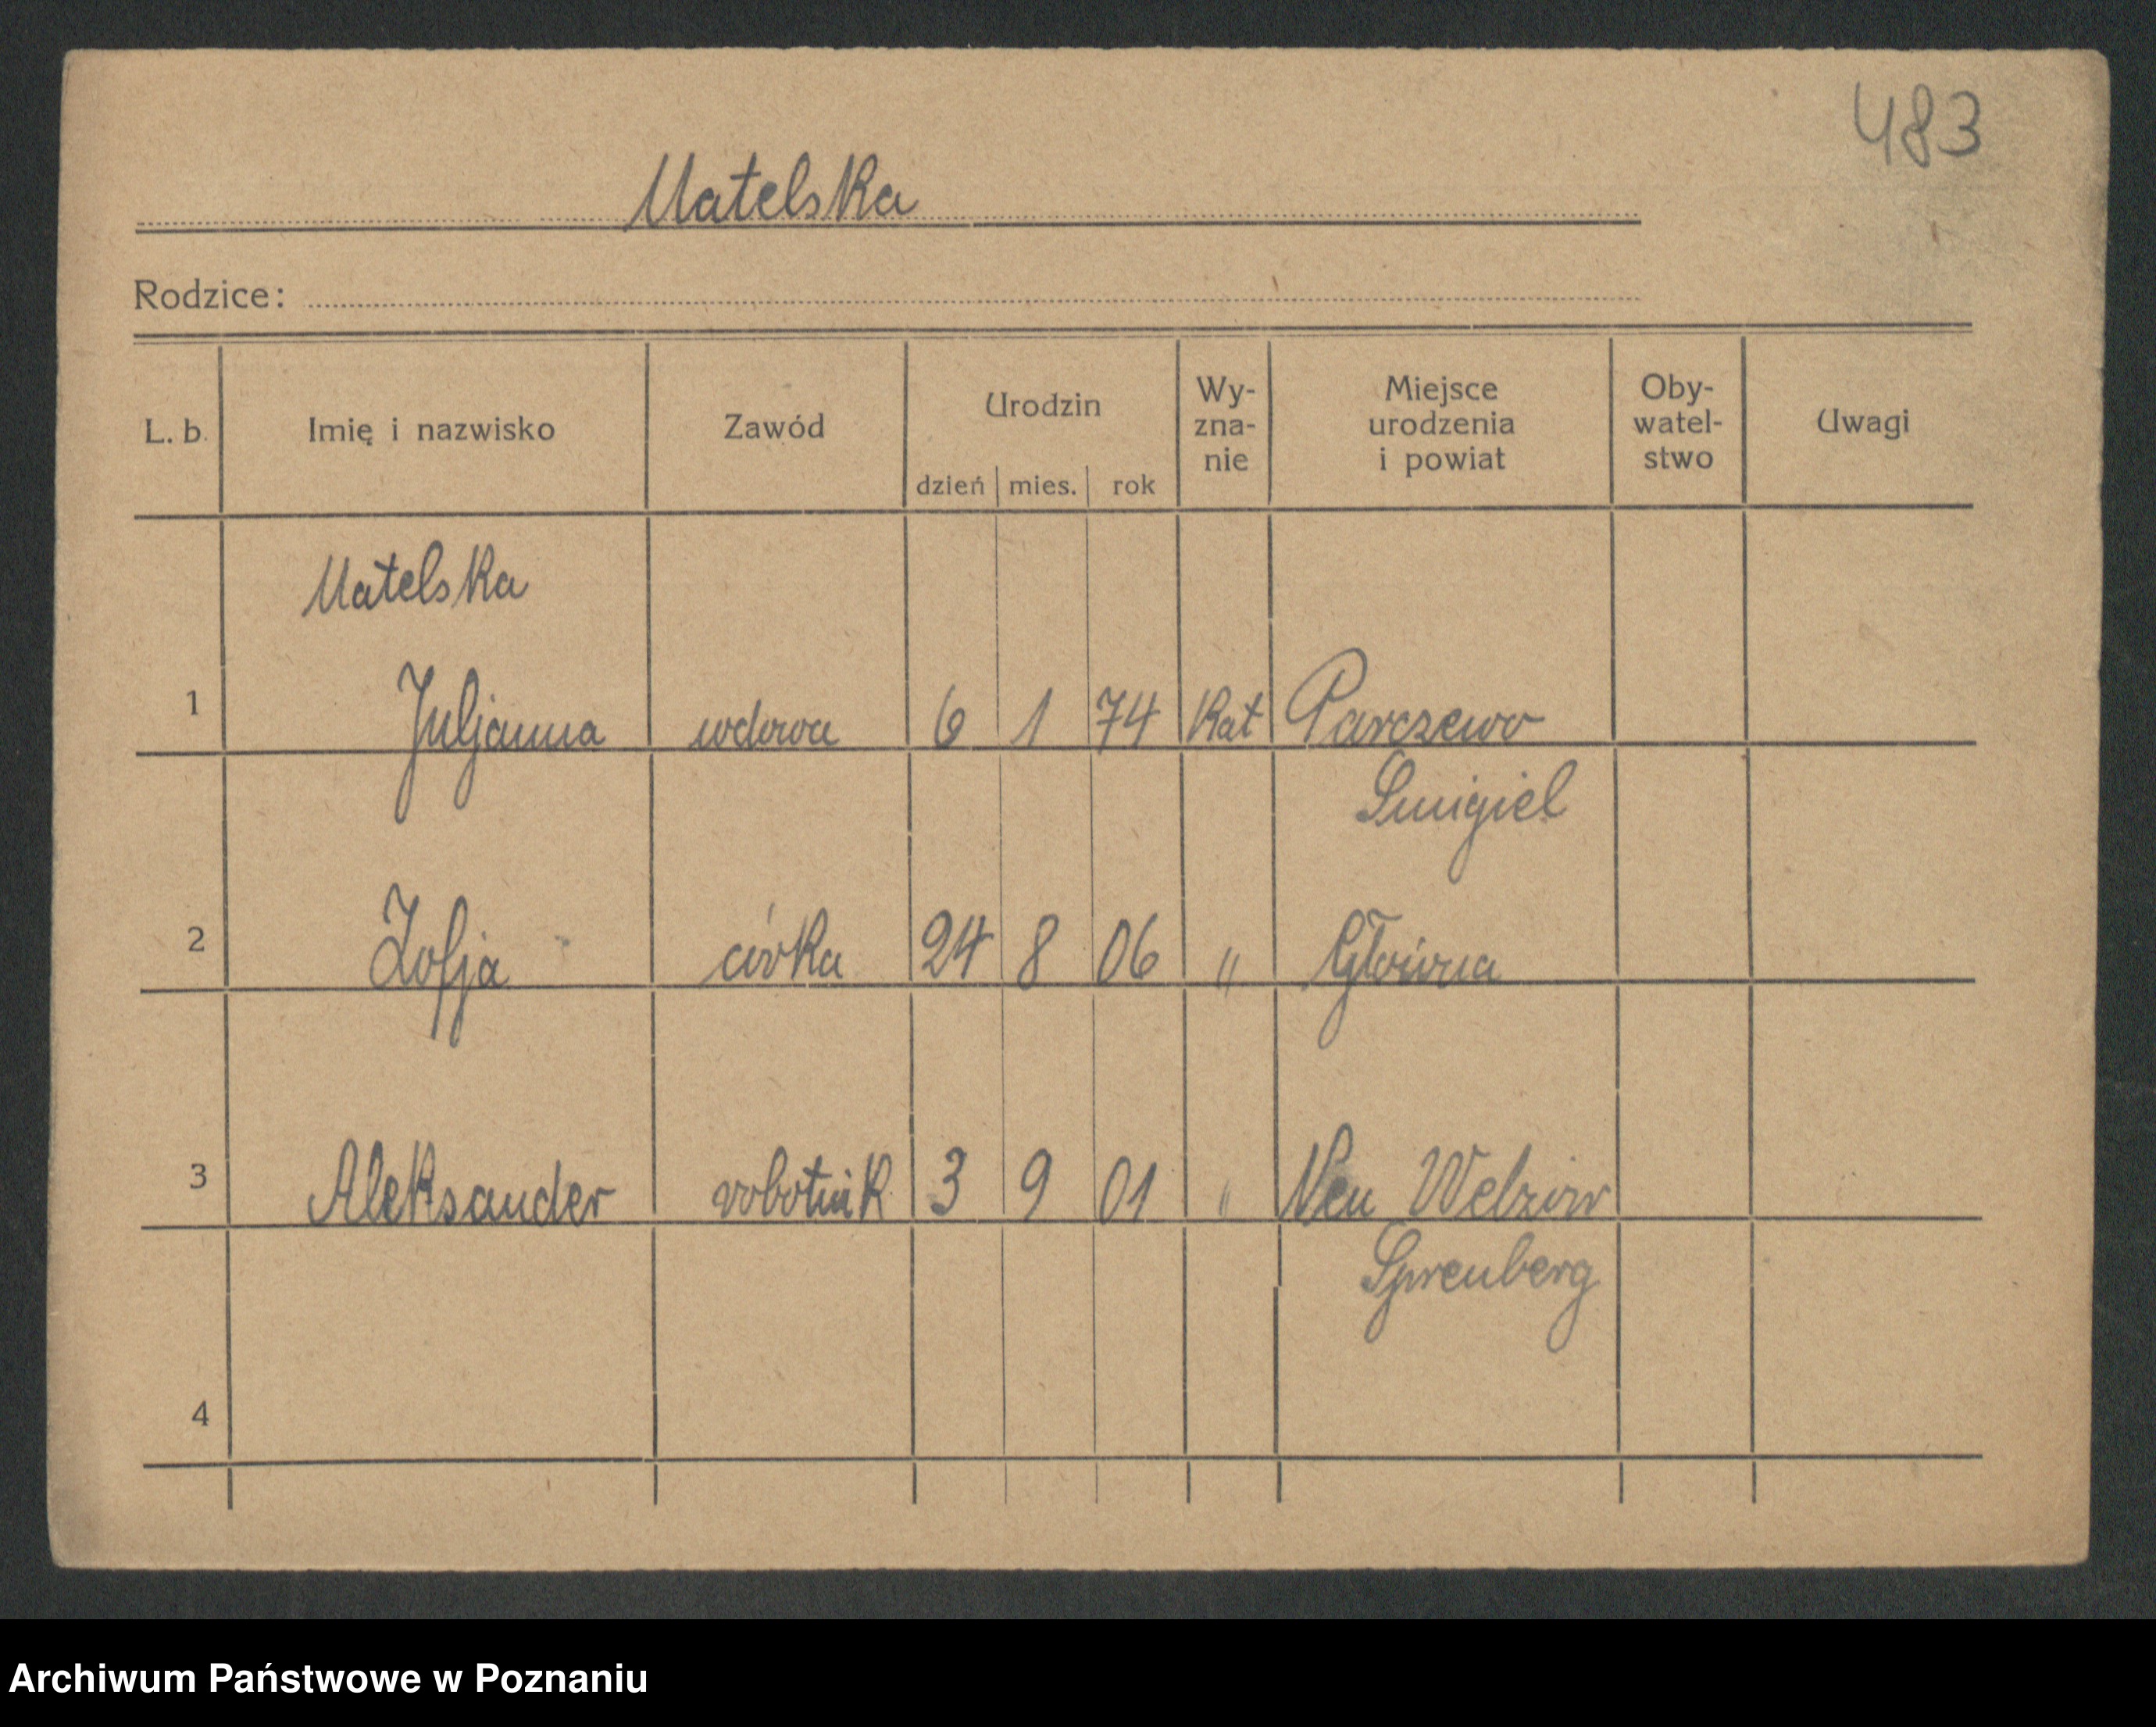 483
Matelska
Rodzice:
L. b. Imię i nazwisko Zawód Urodzin dzień mies. rok Wy-zna-nie Miejsce urodzenia i powiat Oby-watel-stwo Uwagi
Matelska
1 Juljanna wdowa 6 1 74 Kat Parczewo
Smigiel
2 Zofja córka 24 8 06 " Główna
3 Aleksander robotnik 3 9 01 " Neu Welzow
Sprenberg
4
Archiwum Państwowe w Poznaniu